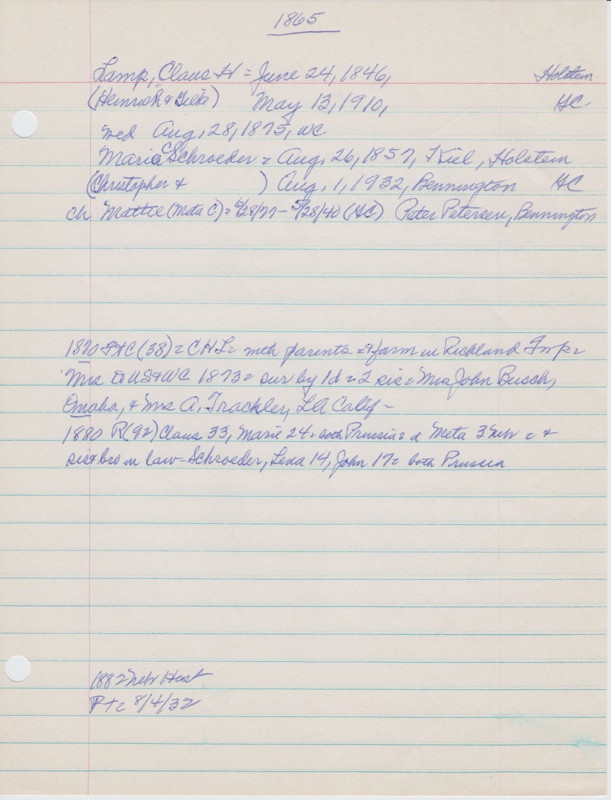 1865
Lamp, Claus H = June 24, 1846, Holstein
(Heinrich & Silke) May 13, 1910, HC
wed Aug, 28, 1875, WC
Maria C Schroeder = Aug, 26, 1857, Kiel, Holstein
(Christopher & ) Aug, 1, 1932, Bennington HC
ch Mattie (Meta C) = 6/28/77 - 5/28/40 (HC) Peter Petersen, Bennington
1870 (38) = CHL = with parents = farm in Richland Twp =
Mrs to US & WC 1873 = sur by 1d = 2 sis = Mrs John Busch,
Omaha, & Mrs A, Trackler, LA Calif -
1880 (92) Claus 33, Marie 24 = both Prussia = d Meta 3 Neb = &
sis & bro in law = Schroeder, Lena 14, John 17 = both Prussia
1882 Neb Hist
8/4/32